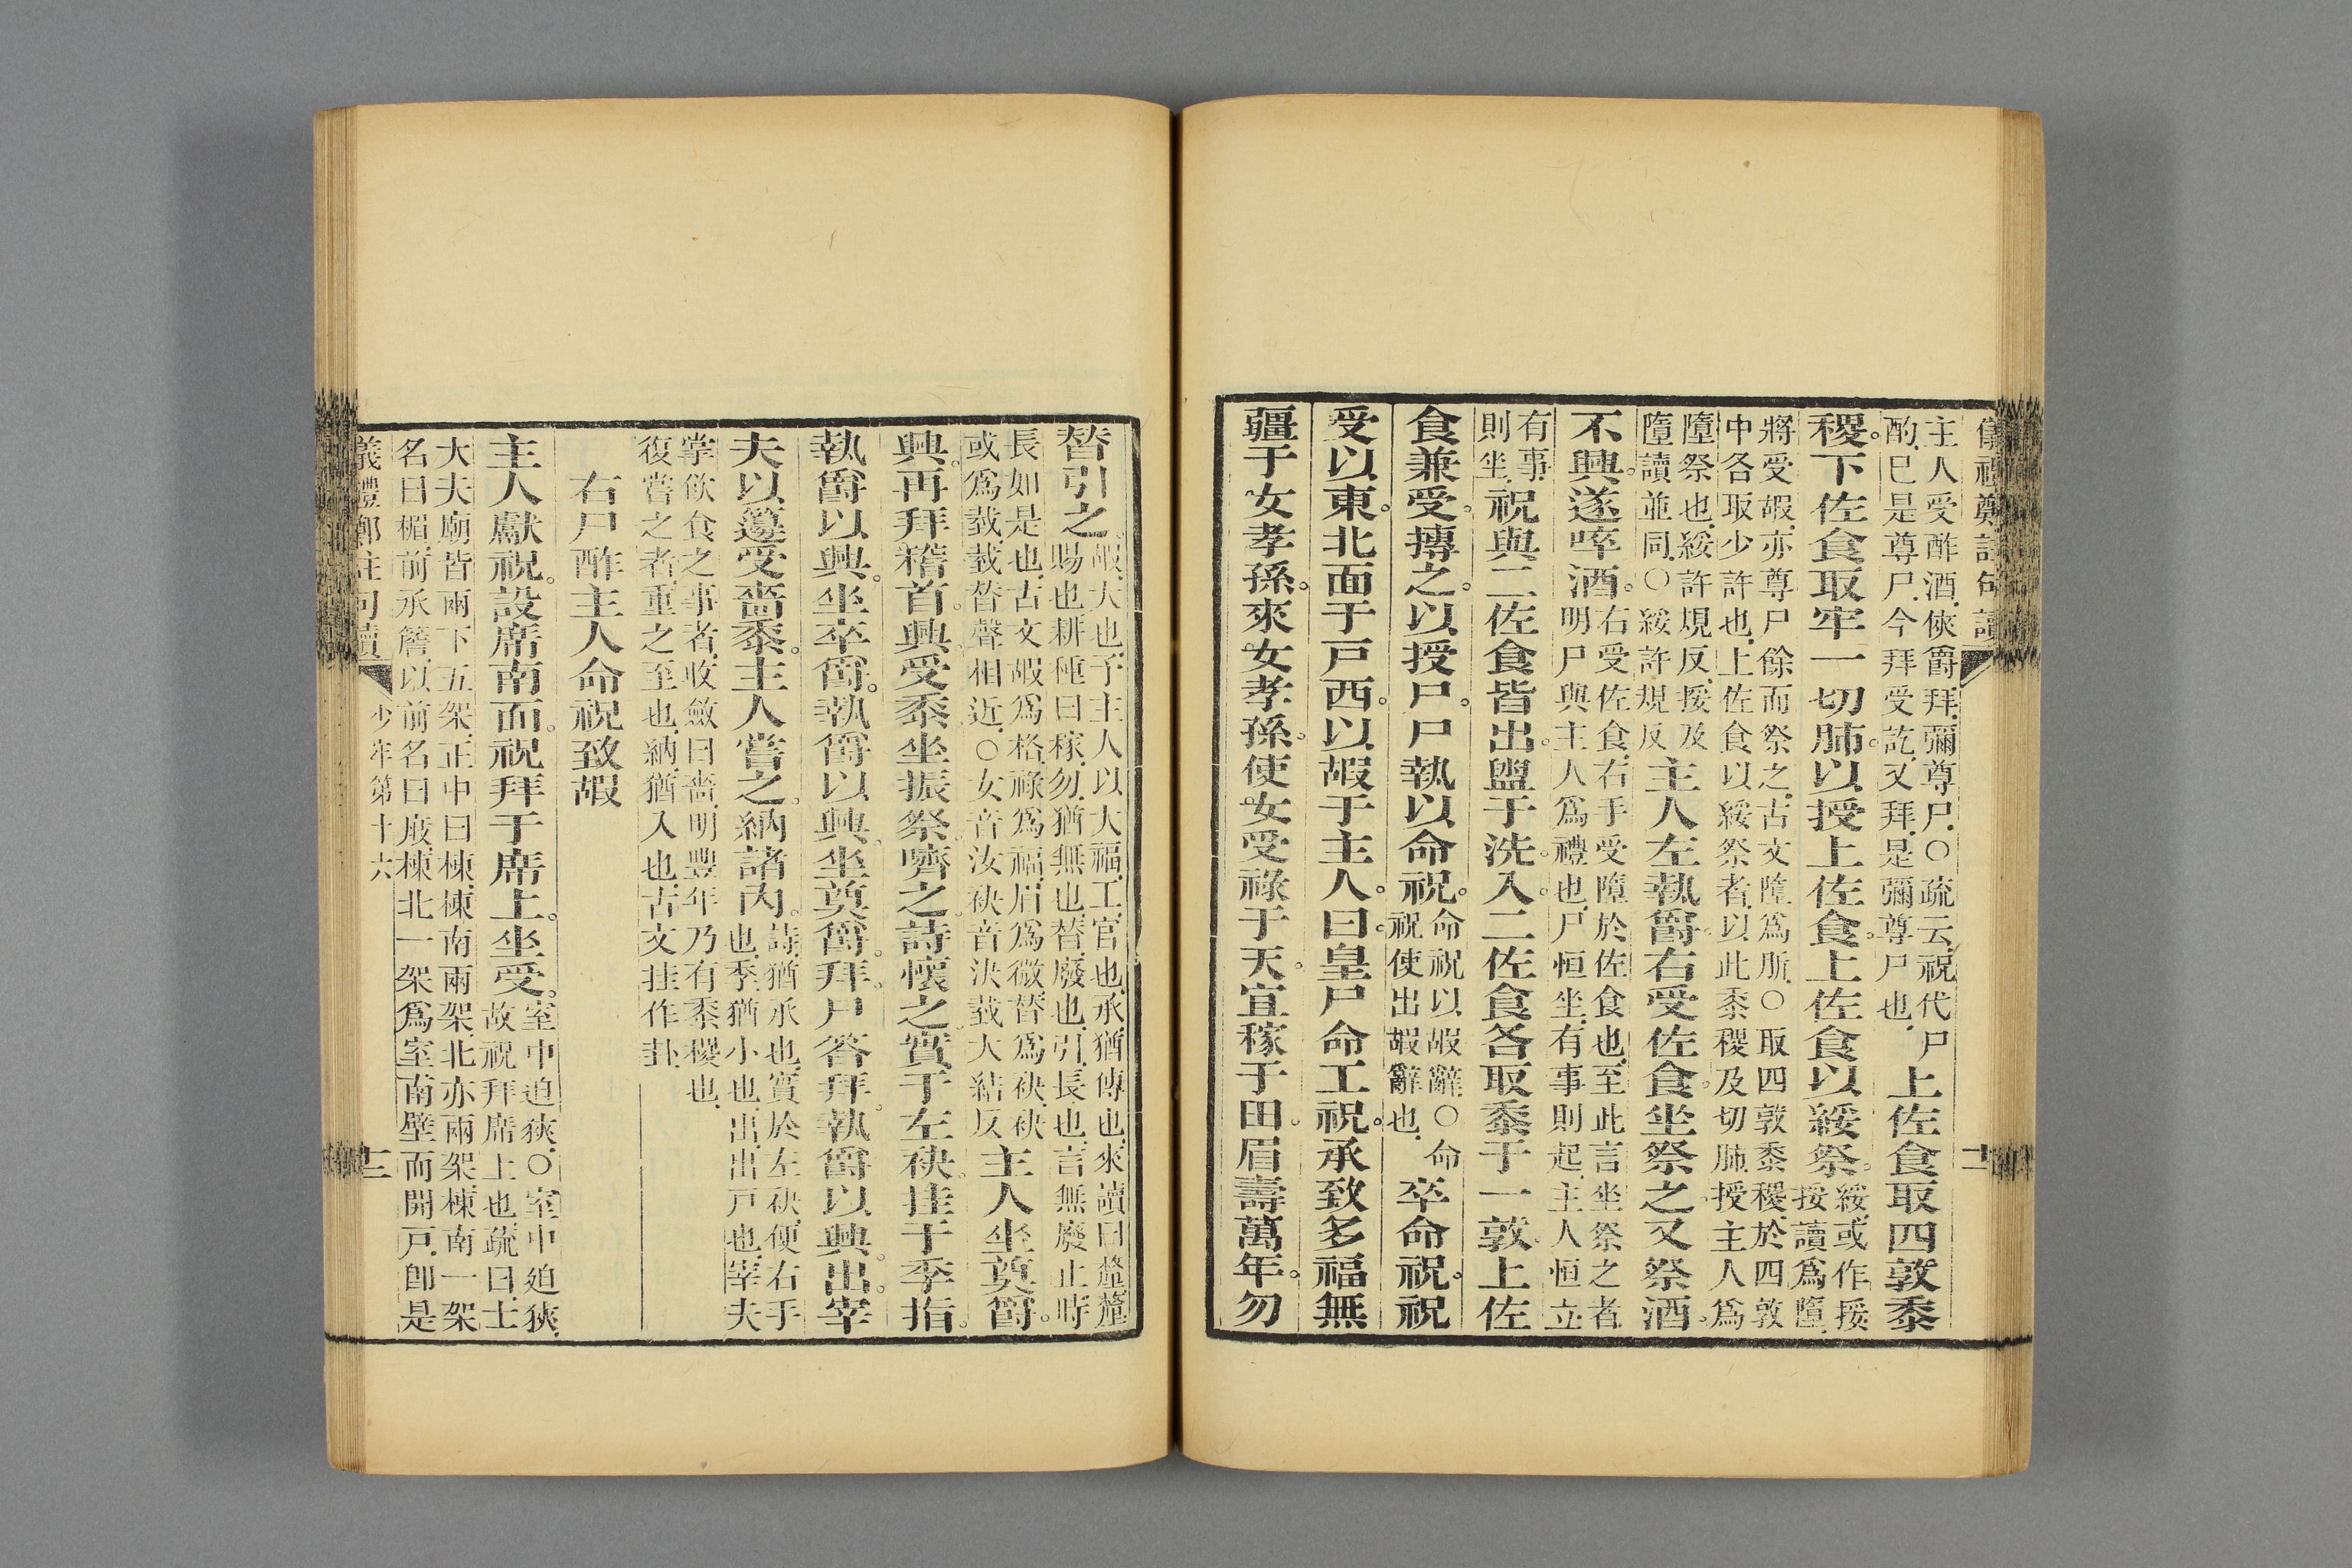 儀禮鄭註句讀
主人受酢酒俠爵拜彌尊尸○疏云祝代尸
酌已是尊尸今拜受訖又拜是彌尊尸也上佐食取四敦黍
稷下佐食取牢一切肺以授上佐食上佐食以綏祭綏或作挼
挼讀爲墮
將受嘏亦尊尸餘而祭之古文墮爲肵○取四敦黍稷於四敦
中各取少許也上佐食以綏祭者以此黍稷及切肺授主人爲
墮祭也綏許規反挼及
墮讀並同○綏許規反主人左執爵右受佐食坐祭之又祭酒
不興遂啐酒右受佐食右手受墮於佐食也至此言坐祭之者
明尸與主人爲禮也尸恒坐有事則起主人恒立
有事
則坐祝與二佐食皆出盥于洗入二佐食各取黍于一敦上佐
食兼受摶之以授尸尸執以命祝命祝以嘏辭○命
祝使出嘏辭也卒命祝祝
受以東北面于戸西以嘏于主人曰皇尸命工祝承致多福無
疆于女孝孫來女孝孫使女受祿于天宜稼于田眉壽萬年勿
替引之嘏大也予主人以大福工官也承猶傳也來讀曰釐釐
賜也耕種曰稼勿猶無也替廢也引長也言無廢止時
長如是也古文嘏爲格祿爲福眉爲微替爲袂袂
或爲㦸㦸替聲相近○女音汝袂音決㦸大結反主人坐奠爵
興再拜稽首興受黍坐振祭嚌之詩懷之實于左袂挂于季指
執爵以興坐卒爵執爵以興坐奠爵拜尸答拜執爵以興出宰
夫以籩受嗇黍主人嘗之納諸內詩猶承也實於左袂便右手
也季猶小也出出戸也宰夫
掌飲食之事者收斂曰嗇明豐年乃有黍稷也
復嘗之者重之至也納猶入也古文挂作卦
右尸酢主人命祝致嘏
主人獻祝設席南面祝拜于席上坐受室中迫狹○室中迫狹
故祝拜席上也疏曰士
大夫廟皆兩下五架正中曰棟棟南兩架北亦兩架棟南一架
名曰楣前承簷以前名曰庪棟北一架爲室南壁而開戸卽是
儀禮鄭註句讀 少牢第十六